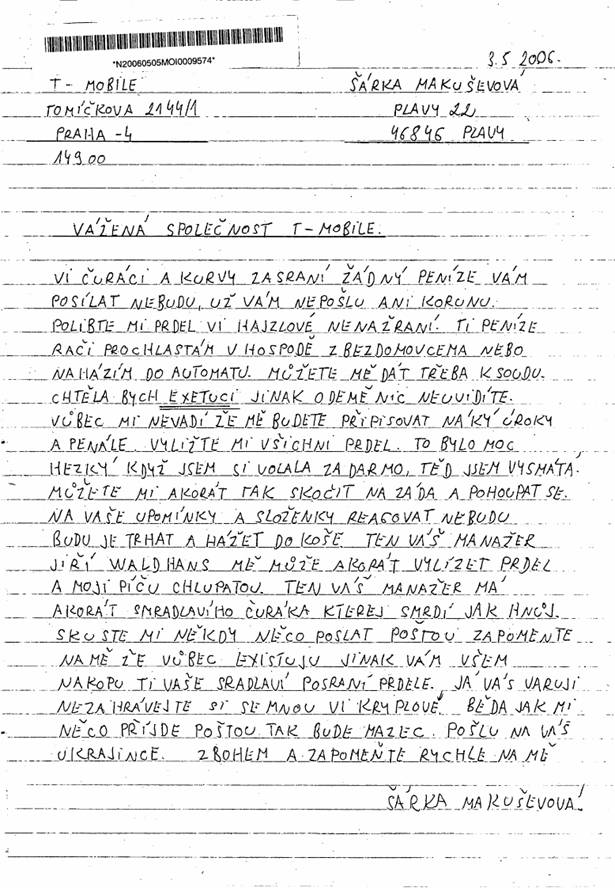 *N20060505MOI0009574*
3.5 2006.
T- MOBILE ŠÁRKA MAKUŠEVOVÁ
TOMÍČKOVA 2144/1 PLAVY 22
PRAHA -4 46846 PLAVY
149 00
VÁŽENÁ SPOLEČNOST T-MOBILE.
VÍ ČURÁCI A KURVY ZASRANÍ ŽÁDNÝ PENÍZE VÁM
POSÍLAT NEBUDU, UŽ VÁM NEPOŠLU ANI KORUNU.
POLIBTE MI PRDEL VÍ HAJZLOVÉ NENAŽRANÍ. TI PENÍZE
RAČI PROCHLASTÁM V HOSPODĚ Z BEZDOMOVCEMA NEBO
NAHÁZÍM DO AUTOMATU. MŮŽETE MĚ DÁT TŘEBA K SOUDU.
CHTĚLA BYCH EXETUCI JINAK ODEMĚ NIC NEUVIDÍTE.
VŮBEC MI NEVADÍ ŽE MĚ BUDETE PŘIPISOVAT NÁKÝ ÚROKY
A PENÁLE. VYLIŽTE MI VŠICHNI PRDEL. TO BYLO MOC
HEZKÝ KDYŽ JSEM SI VOLALA ZA DARMO, TĚĎ JSEM VYSMÁTÁ.
MŮŽETE MI AKORÁT TAK SKOČIT NA ZÁDA A POHOUPAT SE.
NA VAŠE UPOMÍNKY A SLOŽENKY REAGOVAT NEBUDU
BUDU JE TRHAT A HÁZET DO KOŠE. TEN VÁŠ MANAŽER
JIŘÍ WALDHANS MĚ MŮŽE AKORÁT VYLÍZET PRDEL
A MOJÍ PÍČU CHLUPATOU. TEN VÁŠ MANAŽER MÁ
AKORÁT SMRADLAVÍHO ČURÁKA KTEREJ SMRDÍ JAK HNŮJ.
SKUSTE MI NĚKDY NĚCO POSLAT POŠTOU ZAPOMENTE
NA MĚ ŽE VŮBEC EXISTUJU JINAK VÁM VŠEM
NAKOPU TI VAŠE SRADLAVÍ POSRANÍ PRDELE. JÁ VÁS VARUJI
NEZAHRÁVEJTE SI SE MNOU VÍ KRYPLOVÉ. BĚDA JAK MI
NĚCO PŘIJDE POŠTOU TAK BUDE MAZEC. POŠLU NA VÁS
UKRAJINCE. ZBOHEM A ZAPOMEŇTE RYCHLE NA MĚ
ŠÁRKA MAKUŠEVOVÁ!